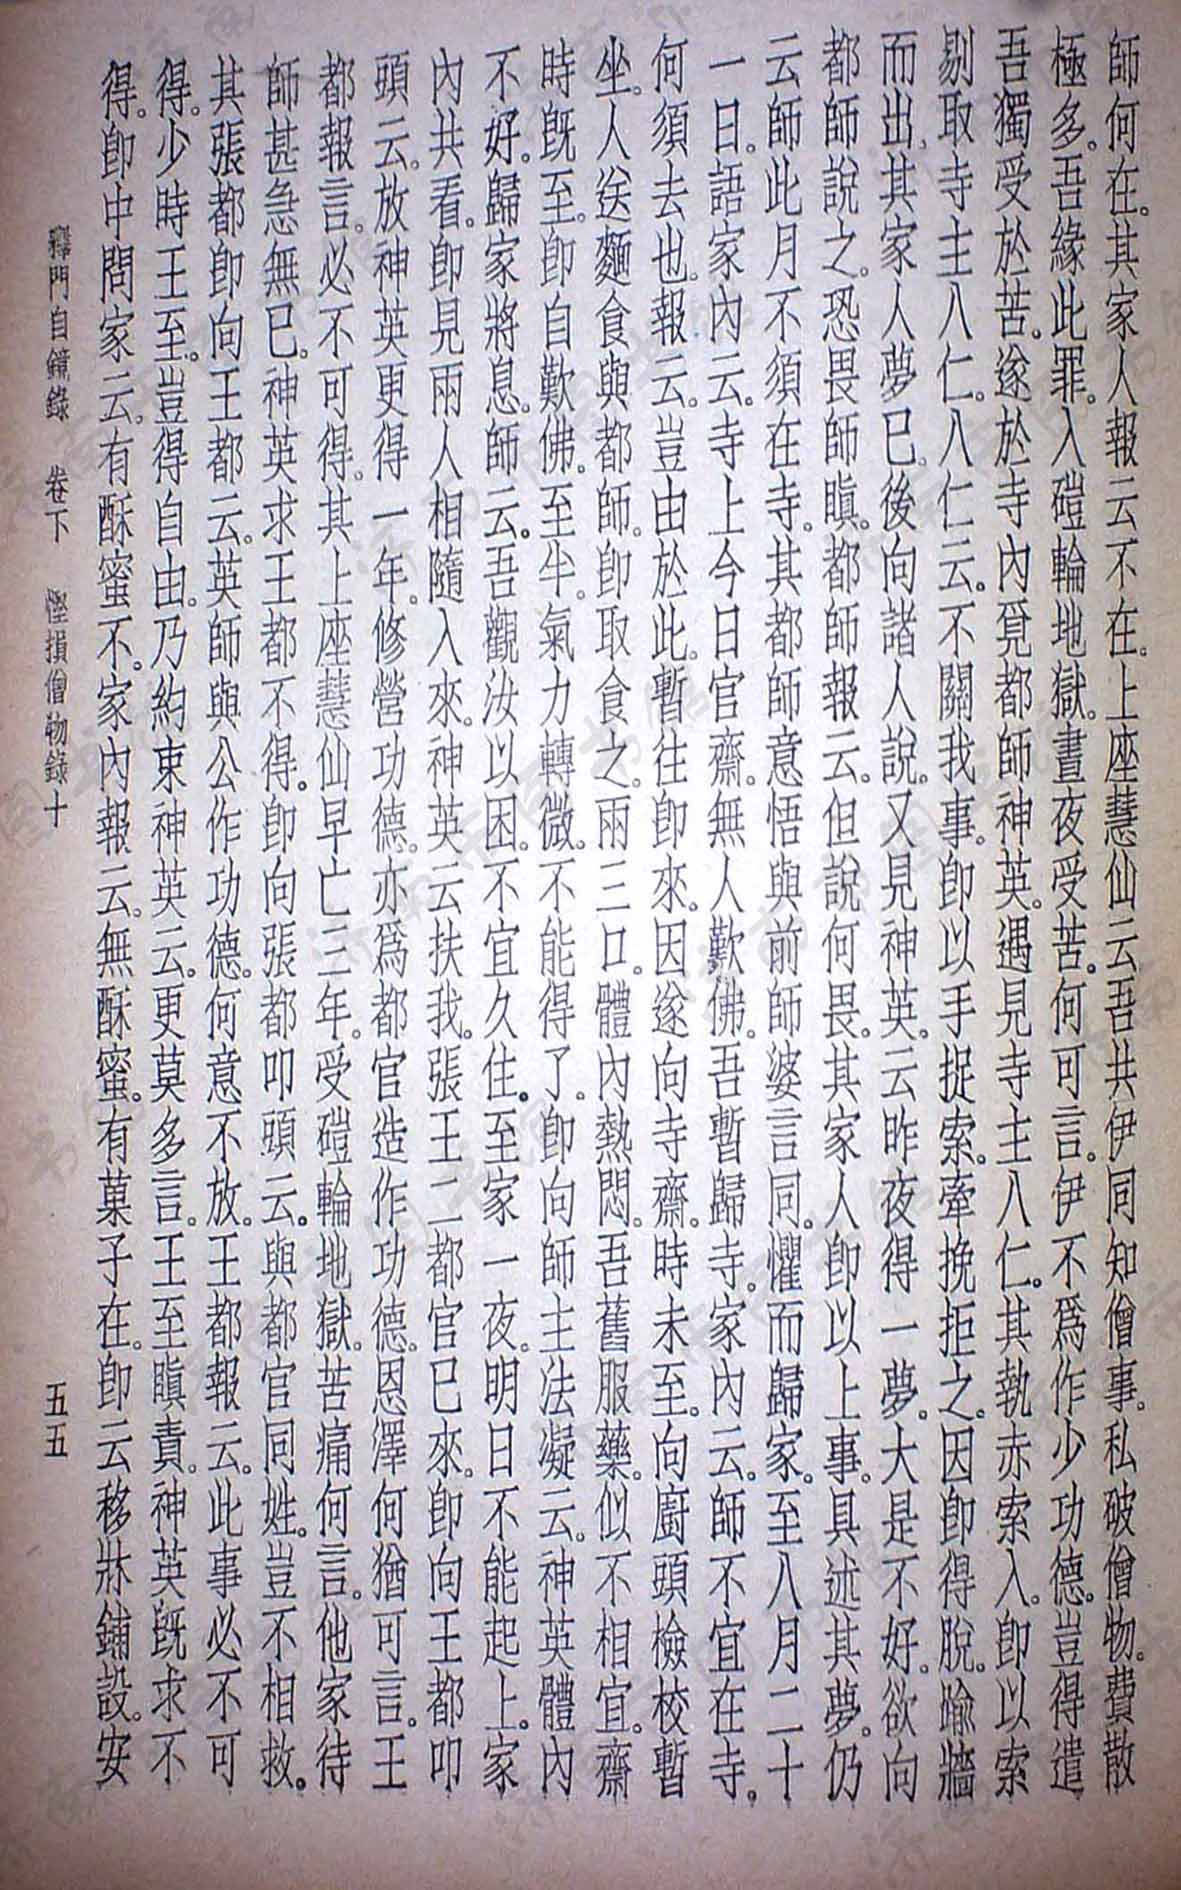 師何在。其家人報云不在。上座慧仙云吾共伊同知僧事。私破僧物。費散
極多。吾緣此罪。入磑輪地獄。晝夜受苦。何可言。伊不爲作少功德。豈得遣
吾獨受於苦。遂於寺內覓都師神英。遇見寺主八仁。其執赤索入。卽以索
剔取寺主八仁。八仁云。不關我事。卽以手捉索。牽挽拒之。因卽得脫。踰牆
而出。其家人夢已。後向諸人說。又見神英。云昨夜得一夢。大是不好。欲向
都師說之。恐畏師瞋。都師報云。但說何畏。其家人卽以上事。具述其夢。仍
云師此月不須在寺。其都師意悟與前師婆言同。懼而歸家。至八月二十
一日。語家內云。寺上今日官齋。無人歎佛。吾暫歸寺。家內云。師不宜在寺。
何須去也。報云。豈由於此。暫往卽來。因遂向寺齋。時未至。向廚頭檢校暫
坐。人送麵食與都師。卽取食之。兩三口。體內熱悶。吾舊服藥。似不相宜。齋
時既至。卽自歎佛。至牛。氣力轉微。不能得了。卽向師主法凝云。神英體內
不好。歸家將息。師云。吾觀汝以困。不宜久住。至家一夜。明日不能起上。家
內共看。卽見兩人相隨入來。神英云扶我。張王二都官已來。卽向王都叩
頭云。放神英更得一年。修營功德。亦爲都官造作功德。恩澤何猶可言。王
都報言。必不可得。其上座慧仙早亡三年。受磑輪地獄。苦痛何言。他家待
師甚急無已。神英求王都不得。卽向張都叩頭云。與都官同姓。豈不相救。
其張都卽向王都云。英師與公作功德。何意不放。王都報云。此事必不可
得。少時王至。豈得自由。乃約束神英云。更莫多言。王至瞋責。神英既求不
得。卽中問家云。有酥蜜不。家內報云。無酥蜜。有菓子在。卽云移牀鋪設。安
釋門自鏡錄　卷下　慳損僧物錄十　五五